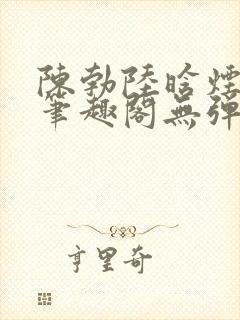 陳勃陸晗煙
筆趣閣無彈
亨里奇